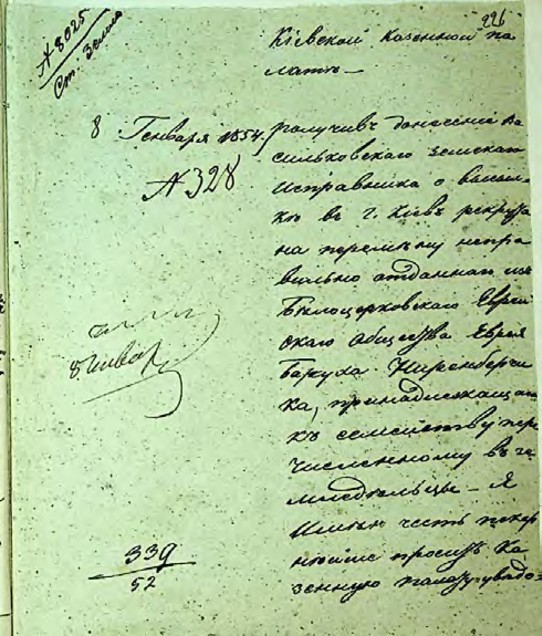 226
№ 8025
Кіевской Казенной Па
латѣ —
8 Генваря 1854.
№ 328
Получивъ донесеніе Ва
сильковскаго земскаго
Исправника о высыл
кѣ въ г. Кіевъ рекрута
на перемѣну непра
вильно отданнаго изъ
Бѣлоцерковскаго Еврей
скаго Общества Еврея
Баруха Ниренберчи
ка, принадлежащаго
къ семейству пере
численному въ зе
мледѣльцы — Я
Имѣю честь покор
нѣйше просить Ка
зенную палату увѣдо
339
52